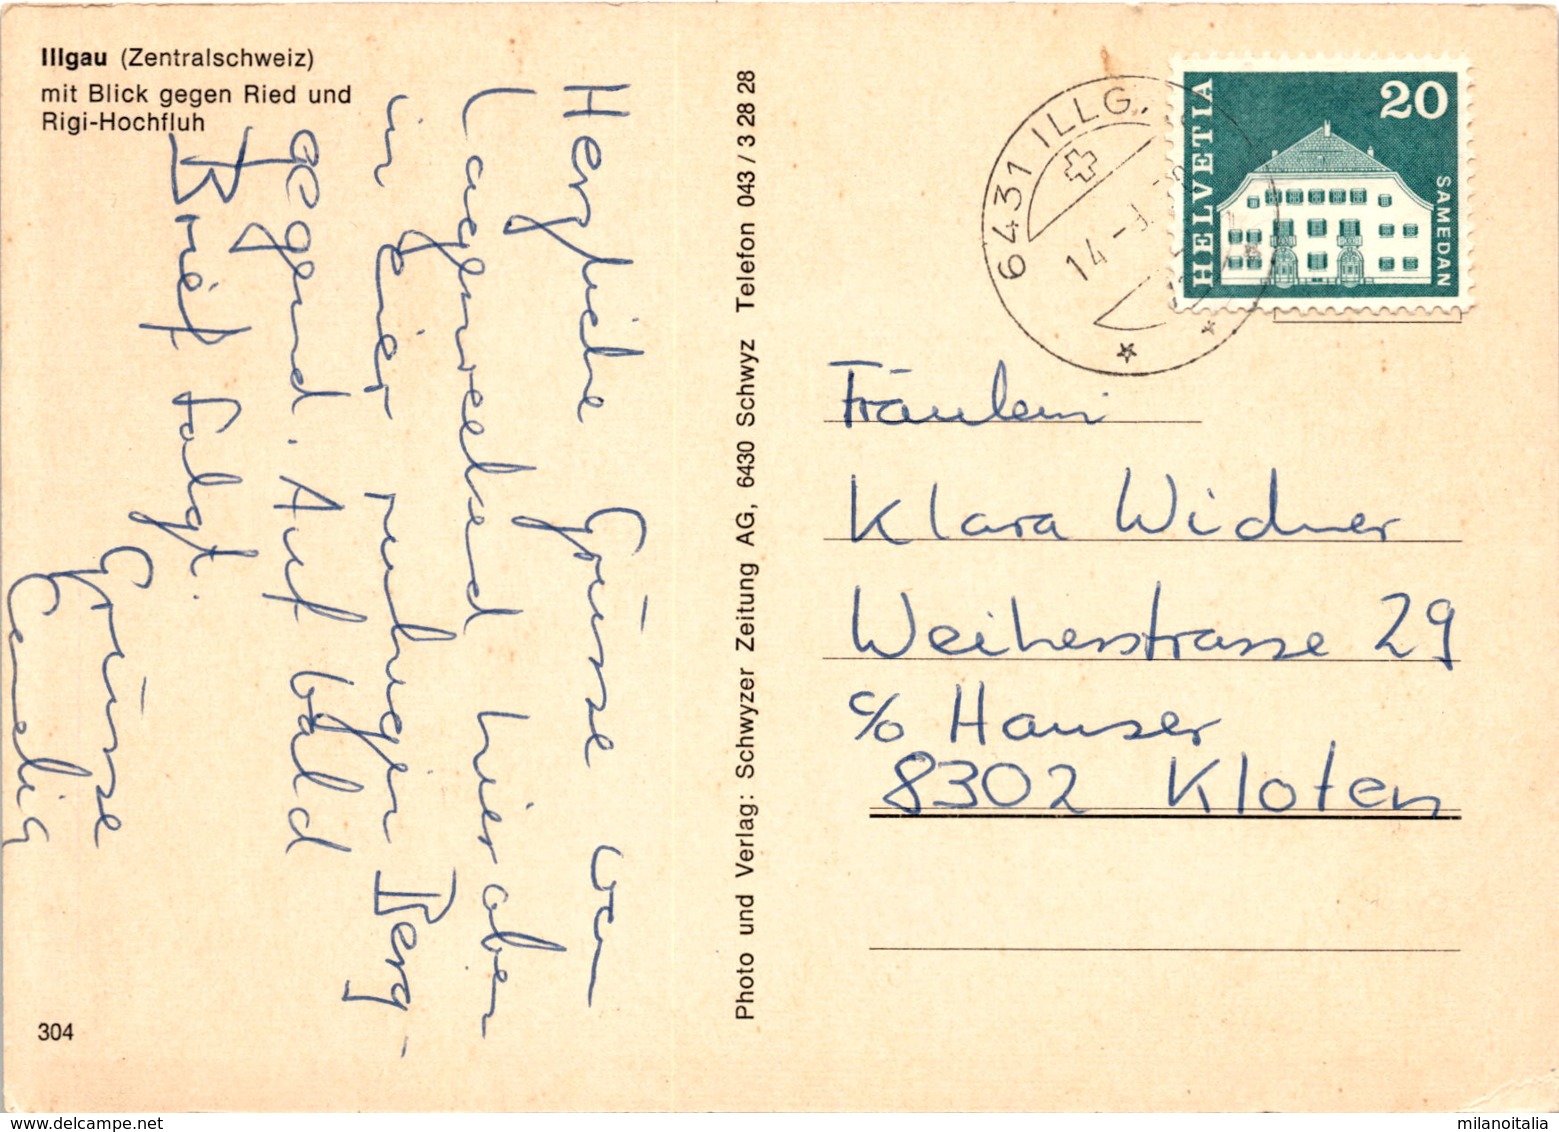 Illgau (Zentralschweiz)
mit Blick gegen Ried und
Rigi-Hochfluh
Herzliche Grüsse von
Lagerwelsed hier oben
in einer ruhigen Berg-
gegend. Auf bald
Brief folgt.
Grüsse
304
Photo und Verlag: Schwyzer Zeitung AG, 6430 Schwyz Telefon 043 / 3 28 28
6431 ILLG
14
HELVETIA
20
SAMEDAN
Fräulein
Klara Widmer
Weiherstrasse 29
c/o Hauser
8302 Kloten
delcampe.net
milanoitalia